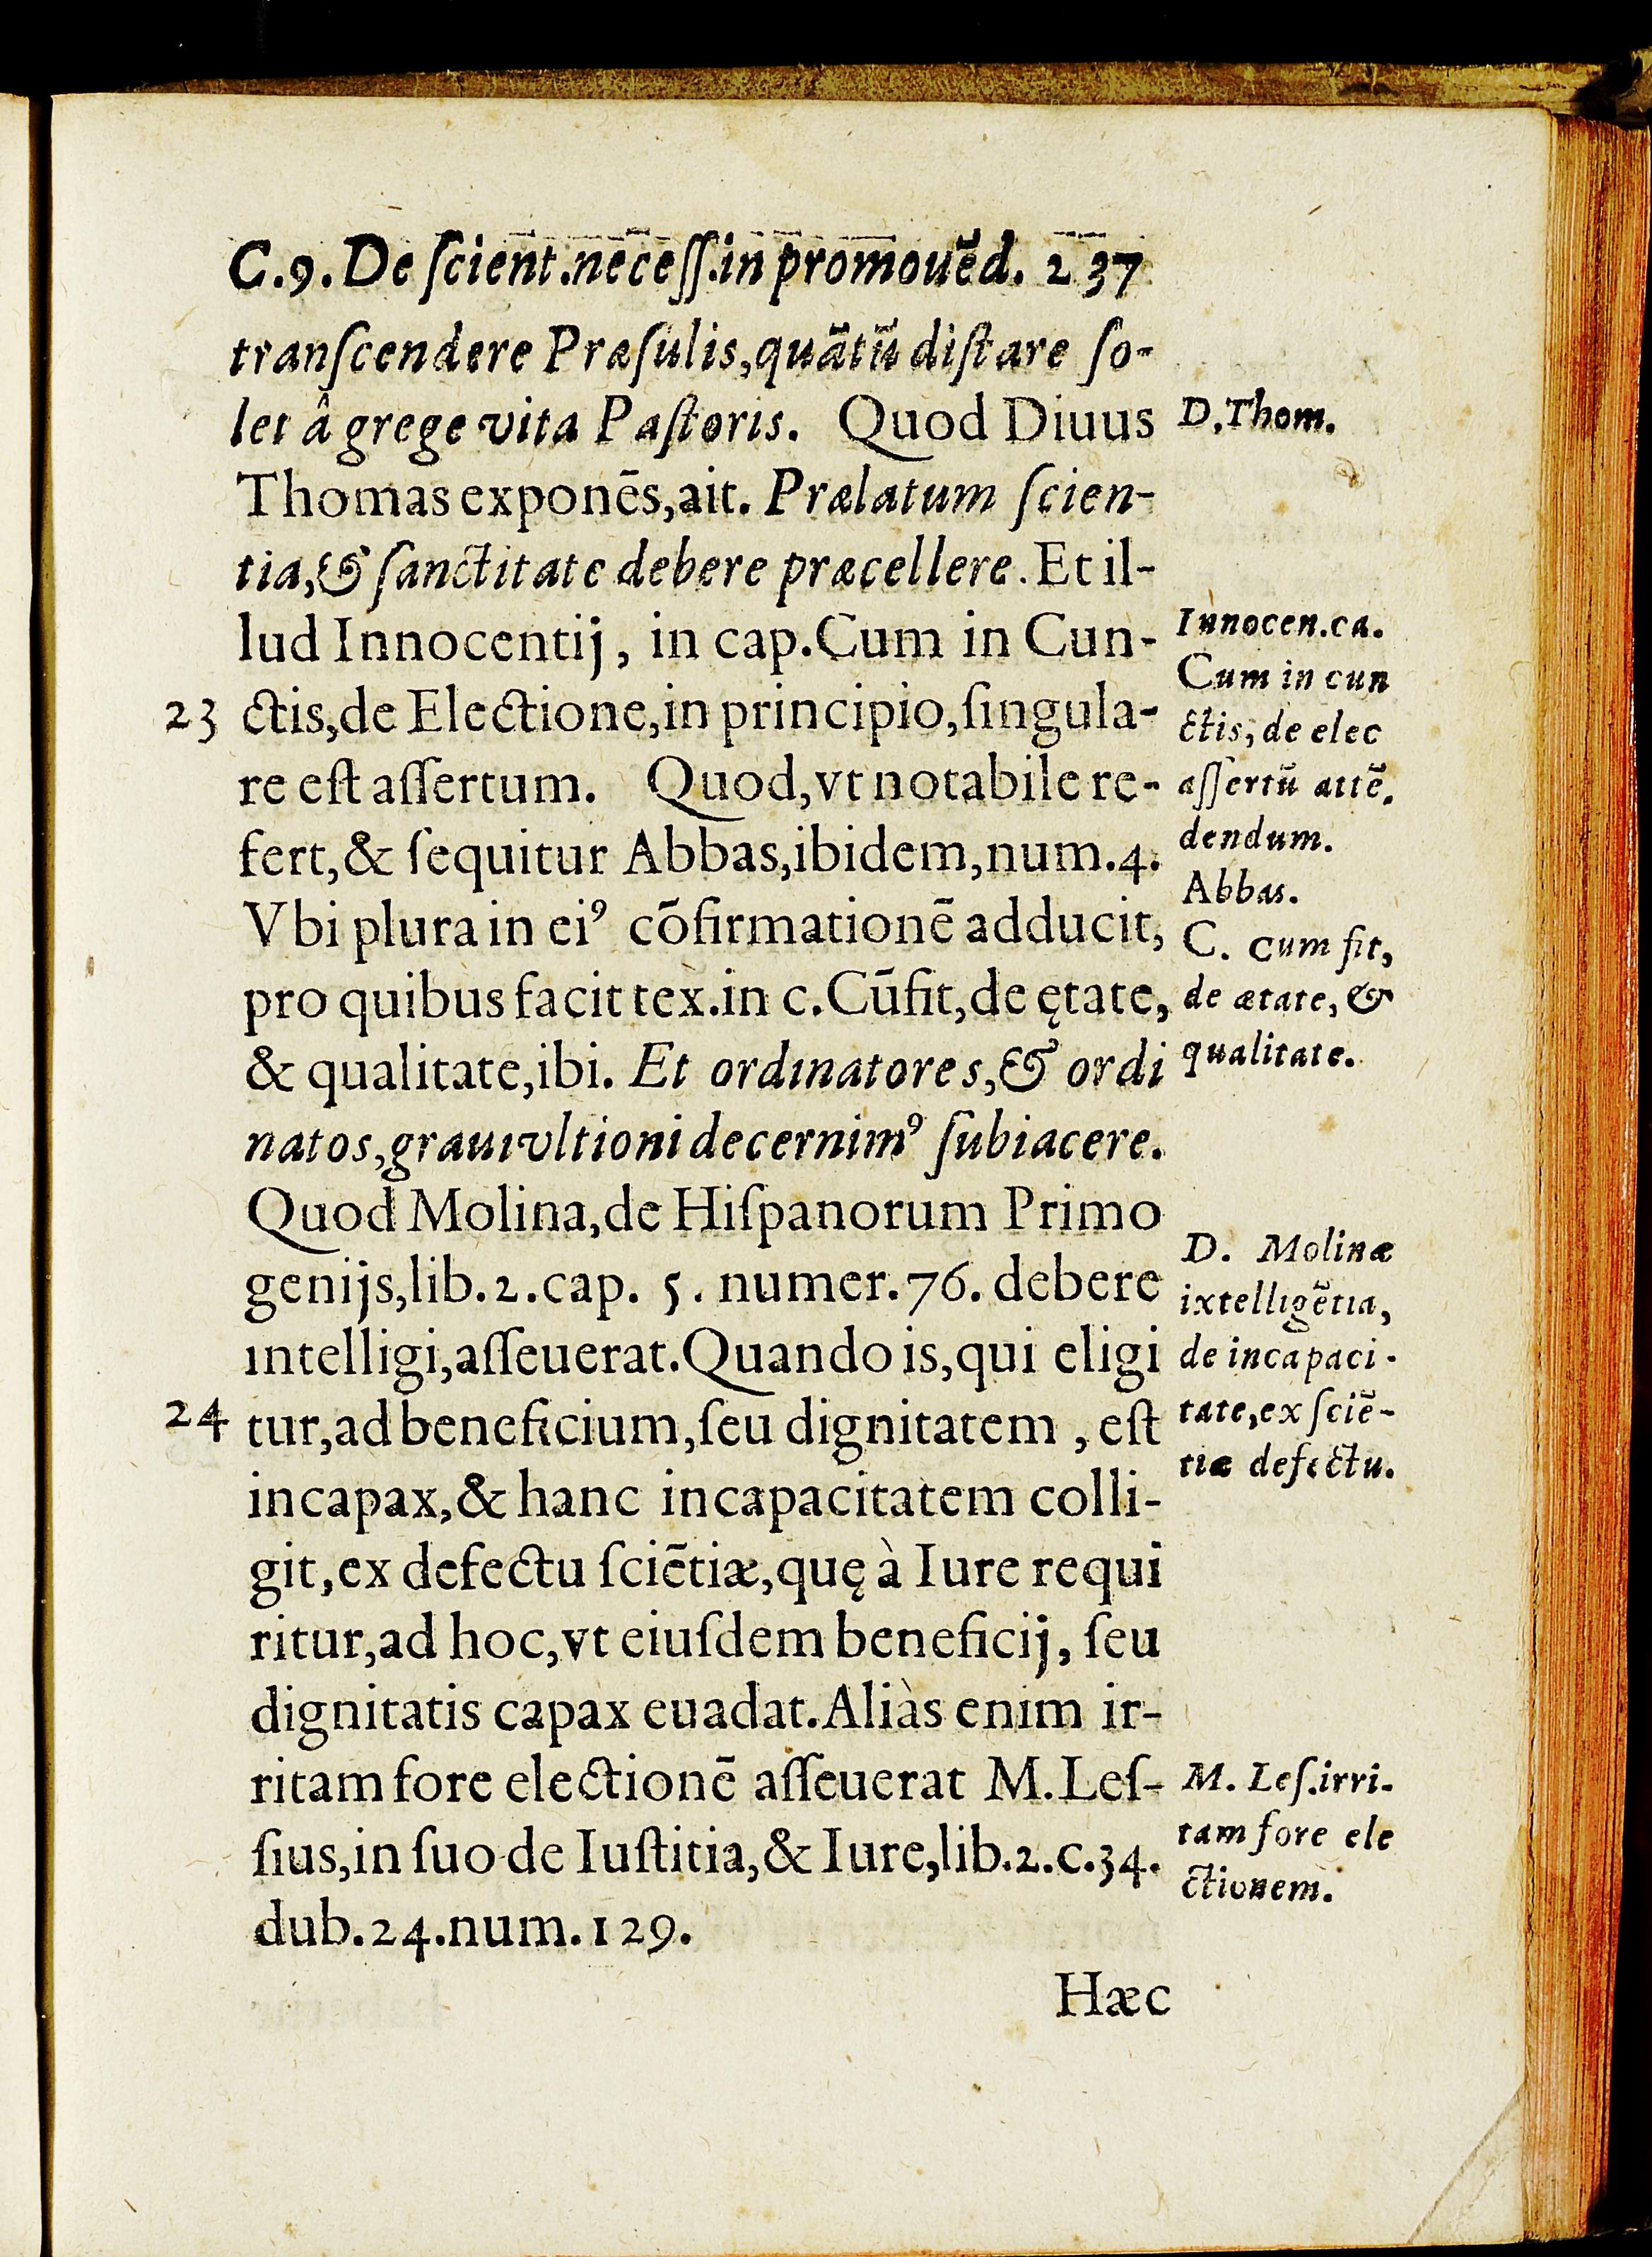 C.9. De ſcient.neceſſ.in promouẽd. 237
tranſcendere Præſulis,quãtũ diſtare ſo-
let â grege vita Paſtoris. Quod Diuus
Thomas exponẽs,ait. Prælatum ſcien-
tia,& ſanctitate debere præcellere. Et il-
lud Innocentij, in cap.Cum in Cun-
23 ctis,de Electione,in principio,ſingula-
re eſt aſſertum. Quod,vt notabile re-
fert,& ſequitur Abbas,ibidem,num.4.
Vbi plura in eiꝰ cõfirmationẽ adducit,
pro quibus facit tex.in c.Cũſit,de ętate,
& qualitate,ibi. Et ordinatores,& ordi
natos,graui vltioni decernimꝰ ſubiacere.
Quod Molina,de Hiſpanorum Primo
genijs,lib.2.cap. 5. numer.76. debere
intelligi,aſſeuerat.Quando is,qui eligi
24 tur,ad beneficium,ſeu dignitatem , eſt
incapax,& hanc incapacitatem colli-
git,ex defectu ſciẽtiæ,quę à Iure requi
ritur,ad hoc,vt eiuſdem beneficij, ſeu
dignitatis capax euadat.Aliàs enim ir-
ritam fore electionẽ aſſeuerat M.Leſ-
ſius,in ſuo de Iuſtitia,& Iure,lib.2.c.34.
dub.24.num.129.
Hæc
D.Thom.
Innocen.ca.
Cum in cun
ctis, de elec
aſſertũ attẽ.
dendum.
Abbas.
C. cum ſit,
de ætate, &
qualitate.
D. Molinæ
ixtelligẽtia,
de incapaci-
tate,ex ſciẽ-
tiæ defectu.
M. Leſ.irri-
tam fore ele
ctionem.